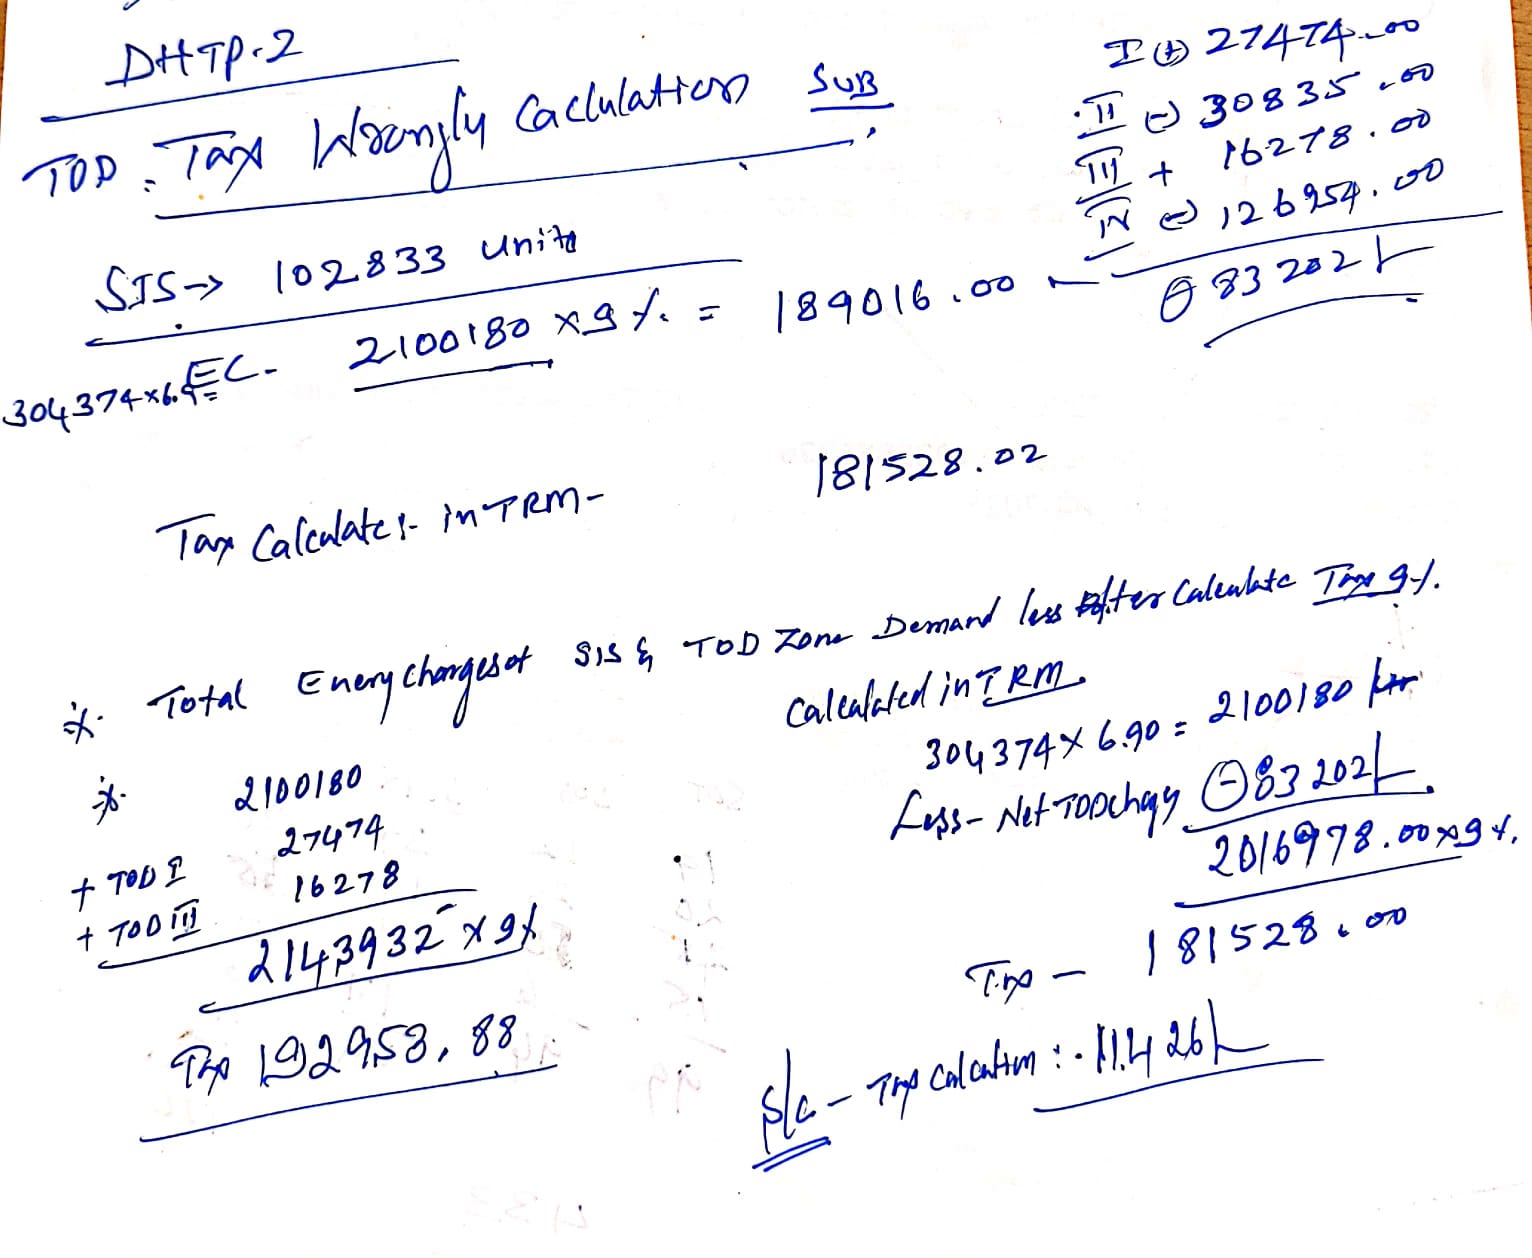 DHTP-2
TOD - Tax Wrongly Caclulation SUB
I (+) 27474.00
II (-) 30835.00
III + 16278.00
IV (-) 126954.00
(-) 83202/-
SIS → 102833 units
304374x6.9= EC- 2100180 x 9 % = 189016.00
Tax Calculates- in TRM - 181528.02
Total Enery charges of SIS & TOD Zone Demand less after Calculate Tax 9%.
Calculated in TRM
304374 X 6.90 = 2100180
Less - Net TOD (-) 83202/-
2016978.00 x 9 %.
Tax - 181528.00
2100180
27474
+ TOD I
16278
+ TOD III
2143932 x 9%
Tax 192953.88
S/c - Tax Calcation :- 11426/-